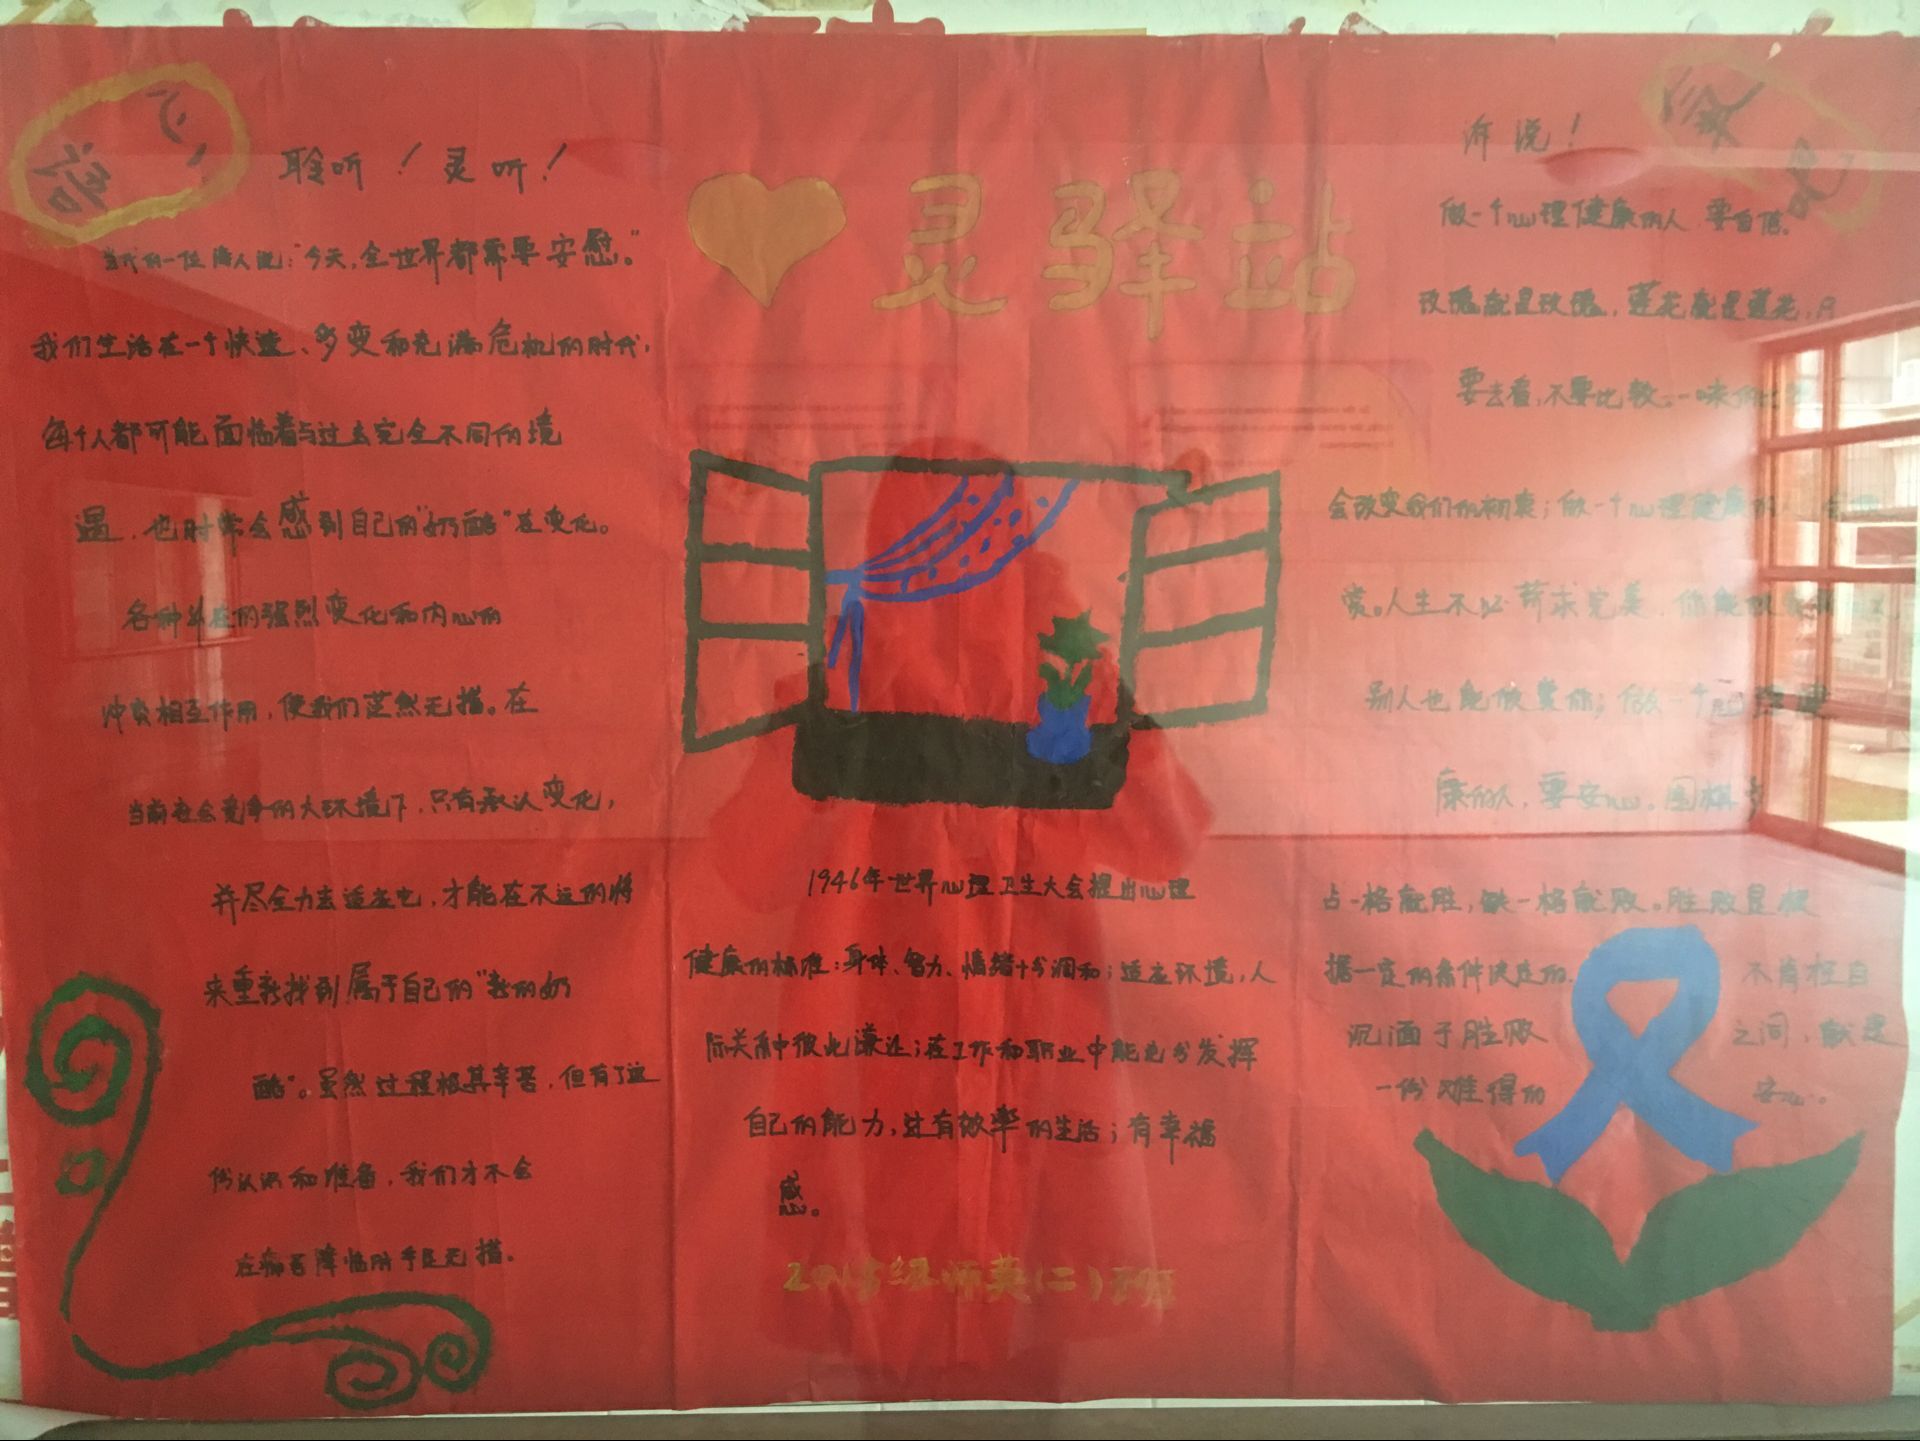 心语
聆听！灵听！
当代的一位僧人说："今天，全世界都需要安慰。"
我们生活在一个快速、多变和充满危机的时代，
每个人都可能面临着与过去完全不同的境
遇，也时常会感到自己的"奶酪"在变化。
各种外在的强烈变化和内心的
冲突相互作用，使我们茫然无措。在
当前社会竞争的大环境下，只有承认变化，
并尽全力去适应它，才能在不远的将
来重新找到属于自己的"新的奶
酪"。虽然过程极其辛苦，但有了这
份认识和准备，我们才不会
在痛苦降临时手足无措。
灵驿站
1946年世界心理卫生大会提出心理
健康的标准：身体、智力、情绪十分调和；适应环境，人
际关系中彼此谦让；在工作和职业中能充分发挥
自己的能力，过有效率的生活；有幸福
感。
2015级师英(二)班
家吧
诉说！
做一个心理健康的人，要自信。
玫瑰就是玫瑰，莲花就是莲花，只
要去看，不要比较。一味的比
会改变我们的初衷；做一个心理健康的
赏。人生不必苛求完美，你能做
别人也能做莫你；做一个心理健
康的人，要安心。围棋
占一格就胜，缺一格就败。胜败是根
据一定的条件决定的 不肯枉自
沉湎于胜败 之间，就是
一份难得的 安心。